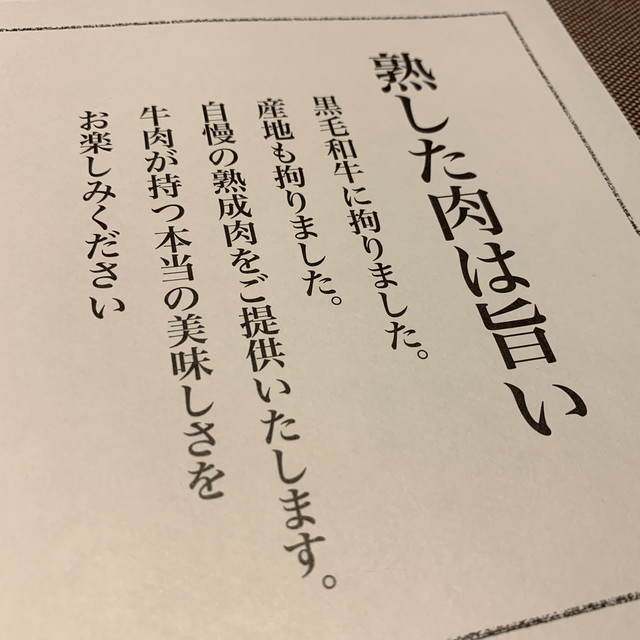 熟した肉は旨い
黒毛和牛に拘りました。
産地も拘りました。
自慢の熟成肉をご提供いたします。
牛肉が持つ本当の美味しさを
お楽しみください